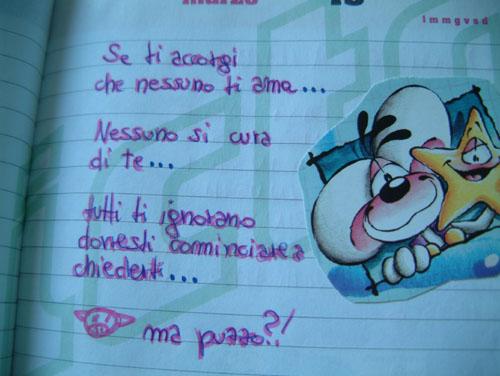 marzo
lmmgvsd
Se ti accorgi
che nessuno ti ama...
Nessuno si cura
di te...
tutti ti ignorano
doresti comminciare a
chiederti...
ma puzzo?!